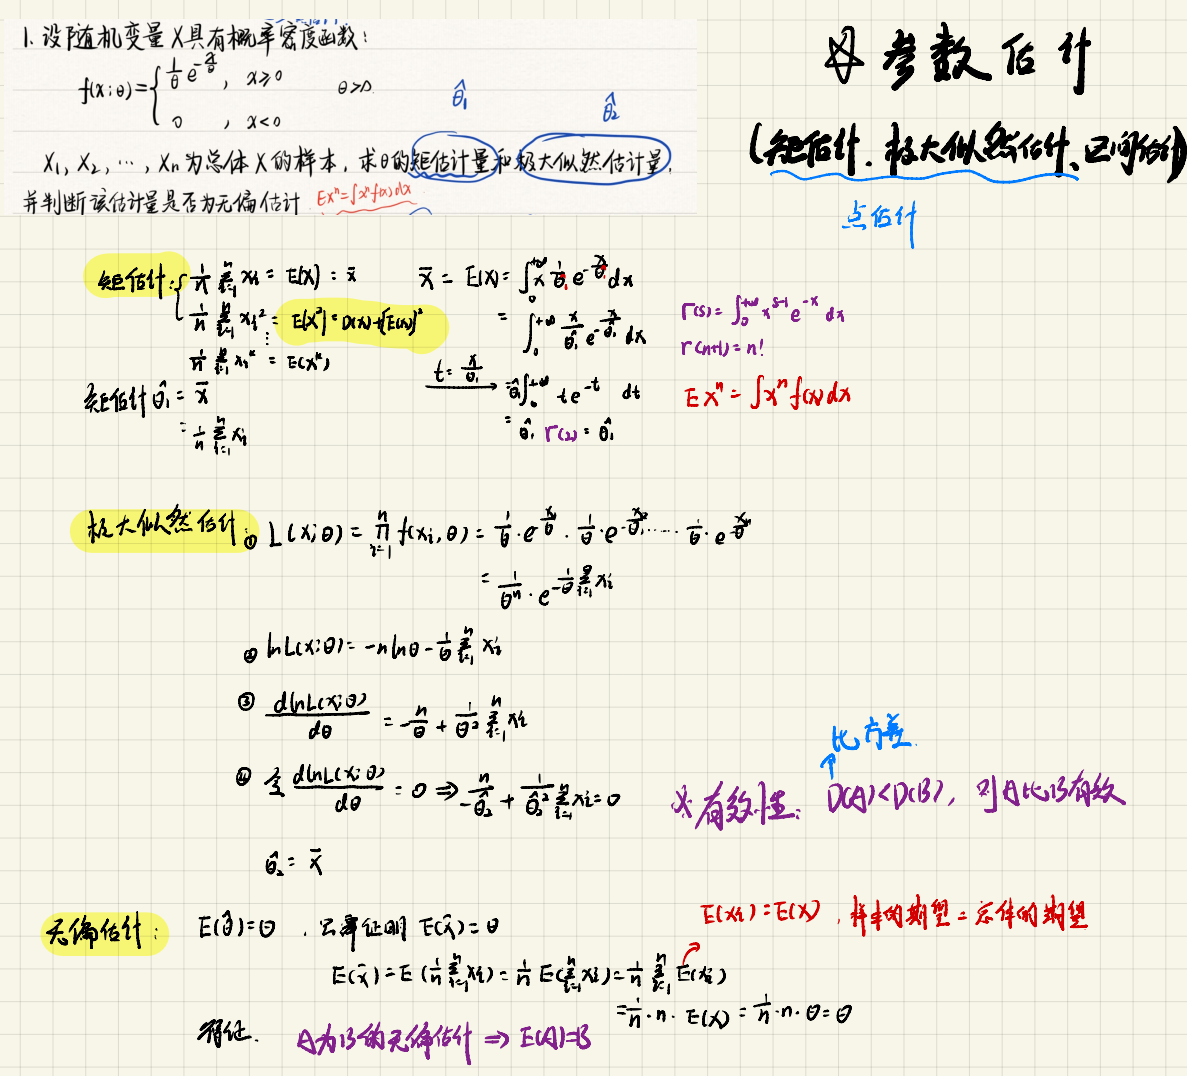 1. 设随机变量 X 具有概率密度函数:
f(x;θ)={ 1/θ e^{-x/θ}, x≥0
0 , x<0
θ>0
θ̂₁
θ̂₂
X₁, X₂, …, Xn 为总体 X 的样本, 求θ的矩估计量和极大似然估计量,
并判断该估计量是否为无偏估计
Ex^n=∫x^n f(x)dx
参数估计
(矩估计、极大似然估计、区间估计)
点估计
矩估计: { 1/n Σ_{i=1}^{n} xi = E(X) = x̄
1/n Σ_{i=1}^{n} xi² = E(X²)=D(X)+[E(X)]²
⋮
1/n Σ_{i=1}^{n} xi^k = E(X^k)
矩估计 θ̂₁ = x̄
= 1/n Σ_{i=1}^{n} xi
x̄ = E(X) = ∫_0^{+∞} x 1/θ̂₁ e^{-x/θ̂₁} dx
= ∫_0^{+∞} x/θ̂₁ e^{-x/θ̂₁} dx
t=x/θ̂₁ → = θ̂₁∫_0^{+∞} t e^{-t} dt
= θ̂₁ Γ(2) = θ̂₁
Γ(s)=∫_0^{+∞} x^{s-1} e^{-x} dx
Γ(n+1)=n!
EX^n = ∫x^n f(x)dx
极大似然估计: ① L(x;θ) = Π_{i=1}^{n} f(xi,θ) = 1/θ·e^{-x₁/θ} · 1/θ·e^{-x₂/θ} ⋯⋯ 1/θ·e^{-xn/θ}
= 1/θ^n · e^{-1/θ Σ_{i=1}^{n} xi}
② lnL(x;θ) = -nlnθ - 1/θ Σ_{i=1}^{n} xi
③ dlnL(x;θ)/dθ = -n/θ + 1/θ² Σ_{i=1}^{n} xi
④ 令 dlnL(x;θ)/dθ = 0 ⇒ -n/θ̂₂ + 1/θ̂₂² Σ_{i=1}^{n} xi = 0
θ̂₂ = x̄
比方差
※有效性: D(A)<D(B), 则A比B有效
无偏估计: E(θ̂)=θ , 只需证明 E(x̄)=θ
E(xi)=E(X), 样本的期望=总体的期望
E(x̄)=E(1/n Σ_{i=1}^{n} xi)=1/n E(Σ_{i=1}^{n} xi)=1/n Σ_{i=1}^{n} E(xi)
=1/n·n·E(X)=1/n·n·θ=θ
得证.
A为B的无偏估计 ⇒ E(A)=B